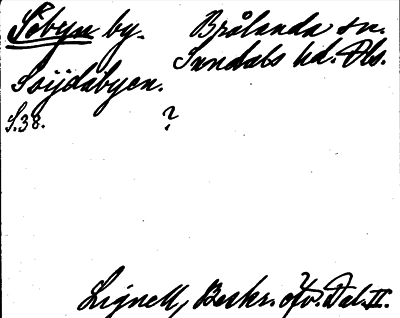 Söbyn by. Brålanda sn.
Sundals hd. Dls.
Soijdabyen.
S.38. ?
Lignell, Beskr. öfv. Dal. II.